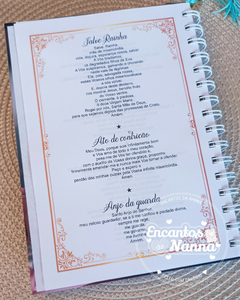 Salve Rainha
Salve, Rainha,
mãe de misericórdia,
vida, doçura, esperança nossa, salve!
A Vós bradamos,
os degredados filhos de Eva.
A Vós suspiramos, gemendo e chorando
neste vale de lágrimas.
Eia, pois, advogada nossa,
esses Vossos olhos misericordiosos
a nós volvei.
E, depois deste desterro,
nos mostrai Jesus, bendito fruto
do Vosso ventre.
Ó clemente, ó piedosa,
ó doce Virgem Maria.
Rogai por nós, Santa Mãe de Deus,
para que sejamos dignos das promessas de Cristo.
Amém.
Ato de contrição
Meu Deus, porque sois infinitamente bom
e Vos amo de todo o meu coração,
pesa-me de Vos ter ofendido e,
com o auxílio da Vossa divina graça, proponho
firmemente emendar-me e nunca mais Vos tornar a ofender.
Peço e espero o
perdão das minhas culpas pela Vossa infinita misericórdia.
Amém.
Anjo da guarda
Santo Anjo do Senhor,
meu zeloso guardador, se a ti me confiou a piedade divina,
sempre me rege,
me guarde,
Amém.
Encantos
da
Nanna